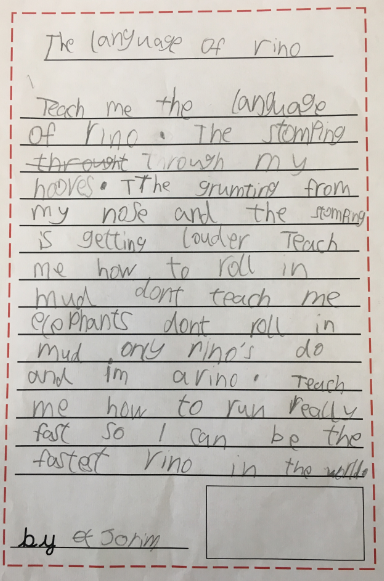 The language of rino
Teach me the language
of rino. The stomping
throught Through my
hooves. The grumting from
my nose and the stomping
is getting louder Teach
me how to roll in
mud dont teach me
elephants dont roll in
mud only rino's do
and im a rino. Teach
me how to run really
fast so I can be the
fastest rino in the world
by